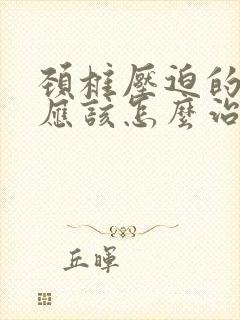 頚椎壓迫的
應該怎麼治
丘暉